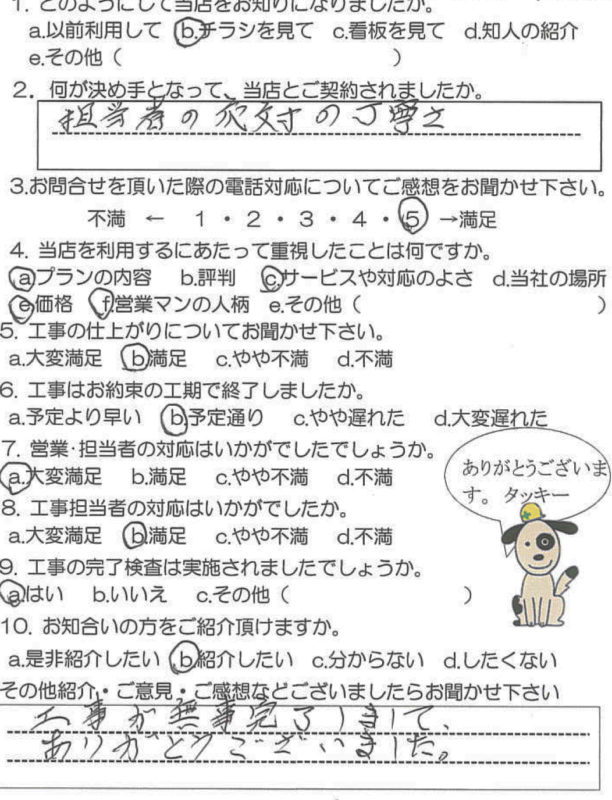 1. どのようにして当店をお知りになりましたか。
a.以前利用して b.チラシを見て c.看板を見て d.知人の紹介
e.その他（ ）
2. 何が決め手となって、当店とご契約されましたか。
担当者の応対の丁寧さ
3.お問合せを頂いた際の電話対応についてご感想をお聞かせ下さい。
不満 ← 1・2・3・4・5 →満足
4. 当店を利用するにあたって重視したことは何ですか。
a.プランの内容 b.評判 c.サービスや対応のよさ d.当社の場所
e.価格 f.営業マンの人柄 e.その他（ ）
5. 工事の仕上がりについてお聞かせ下さい。
a.大変満足 b.満足 c.やや不満 d.不満
6. 工事はお約束の工期で終了しましたか。
a.予定より早い b.予定通り c.やや遅れた d.大変遅れた
7. 営業・担当者の対応はいかがでしたでしょうか。
a.大変満足 b.満足 c.やや不満 d.不満
ありがとうございま
す。 タッキー
8. 工事担当者の対応はいかがでしたか。
a.大変満足 b.満足 c.やや不満 d.不満
9. 工事の完了検査は実施されましたでしょうか。
a.はい b.いいえ c.その他（ ）
10. お知合いの方をご紹介頂けますか。
a.是非紹介したい b.紹介したい c.分からない d.したくない
その他紹介・ご意見・ご感想などございましたらお聞かせ下さい
工事が無事完了しまして、
ありがとうございました。